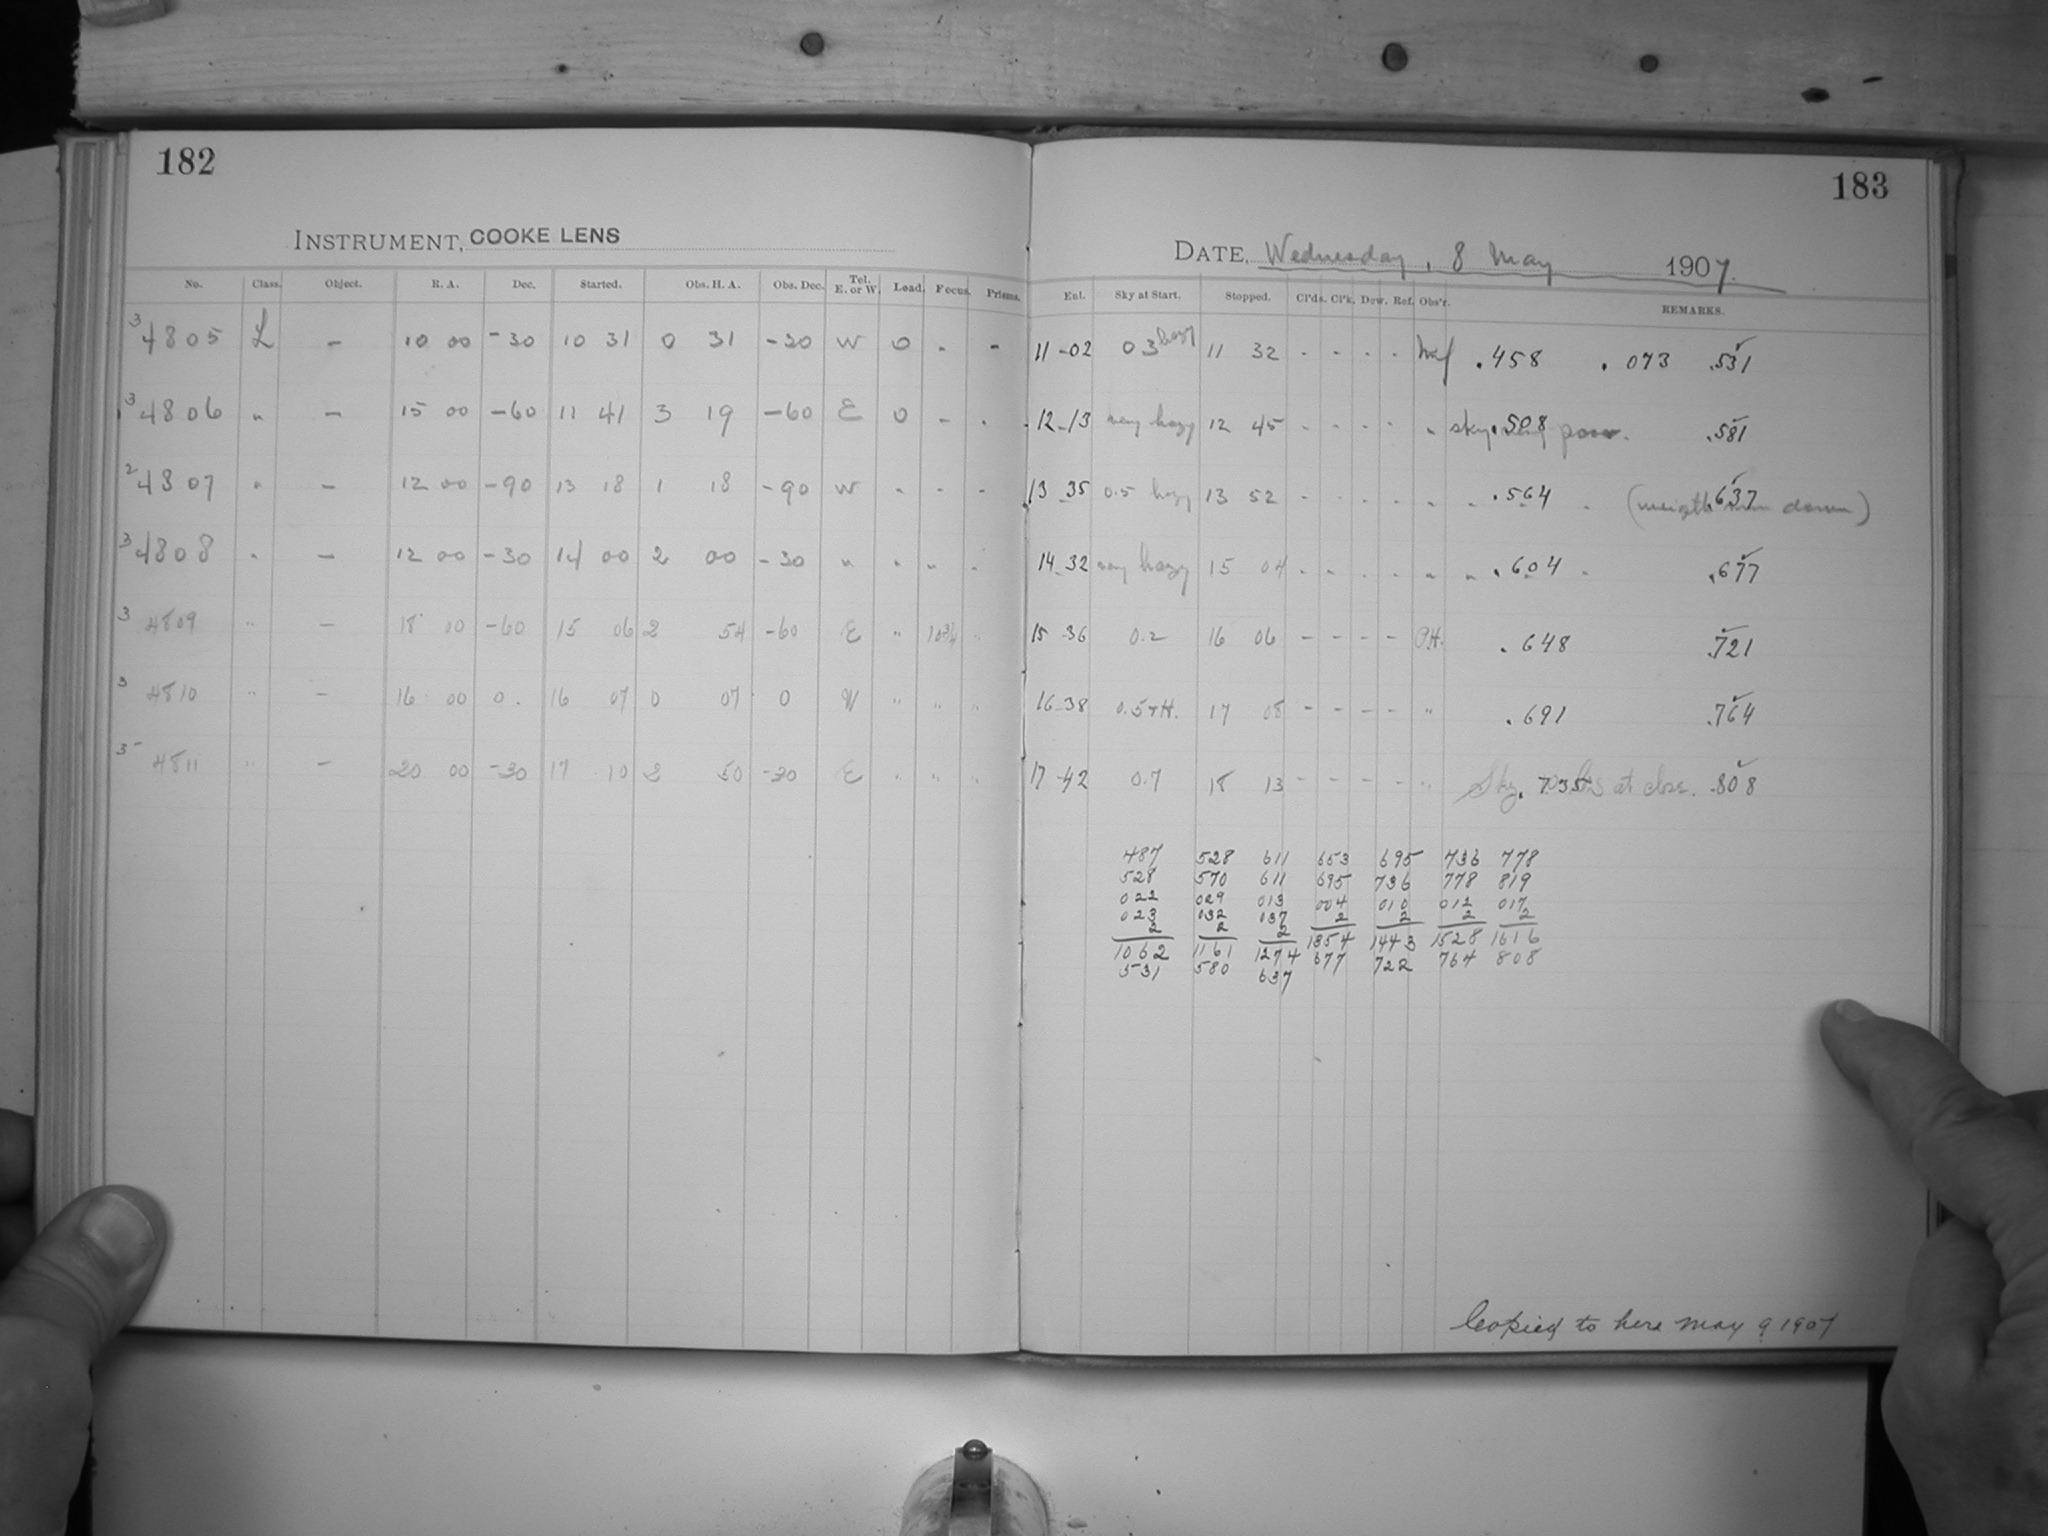 182
INSTRUMENT, COOKE LENS
No. Class. Object. R. A. Dec. Started. Obs. H. A. Obs. Dec. Tel. E. or W. Load. Focus. Prisms.
3 4805 L – 10 00 -30 10 31 0 31 -30 W 0 - -
3 4806 " – 15 00 -60 11 41 3 19 -60 E 0 - -
2 4807 " – 12 00 -90 13 18 1 18 -90 W " - -
3 4808 " – 12 00 -30 14 00 2 00 -30 " " " -
3 4809 " – 18 00 -60 15 06 2 54 -60 E " "
3 4810 " – 16 00 0. 16 07 0 07 0 W " " "
3- 4811 " – 20 00 -30 17 10 2 50 -30 E " " "
183
DATE, Wednesday, 8 May 1907.
Ent. Sky at Start. Stopped. Cl'ds. Cl'k. Dew. Ref. Obs'r. REMARKS.
11-02 03 hazy 11 32 - - - - .458 . 073 .531
12-13 very hazy 12 45 - - - - " sky .508 poor. .581
13 35 0.5 hazy 13 52 - - - - " " .564 .637 down)
14-32 very hazy 15 04 - - - - " " .604 .677
15 36 0.2 16 06 - - - - P.H. .648 .721
16-38 0.5+H. 17 08 - - - - " .691 .764
17-42 0.7 18 13 - - - - " Sky .735 at close. .808
487 528 611 653 695 736 778
528 570 611 695 736 778 819
022 029 013 004 010 012 017
023 032 037 2 2 2 2
2 2 2
1062 1161 1274 1354 1443 1528 1616
531 580 637 677 722 764 808
Copied to here May 9 1907